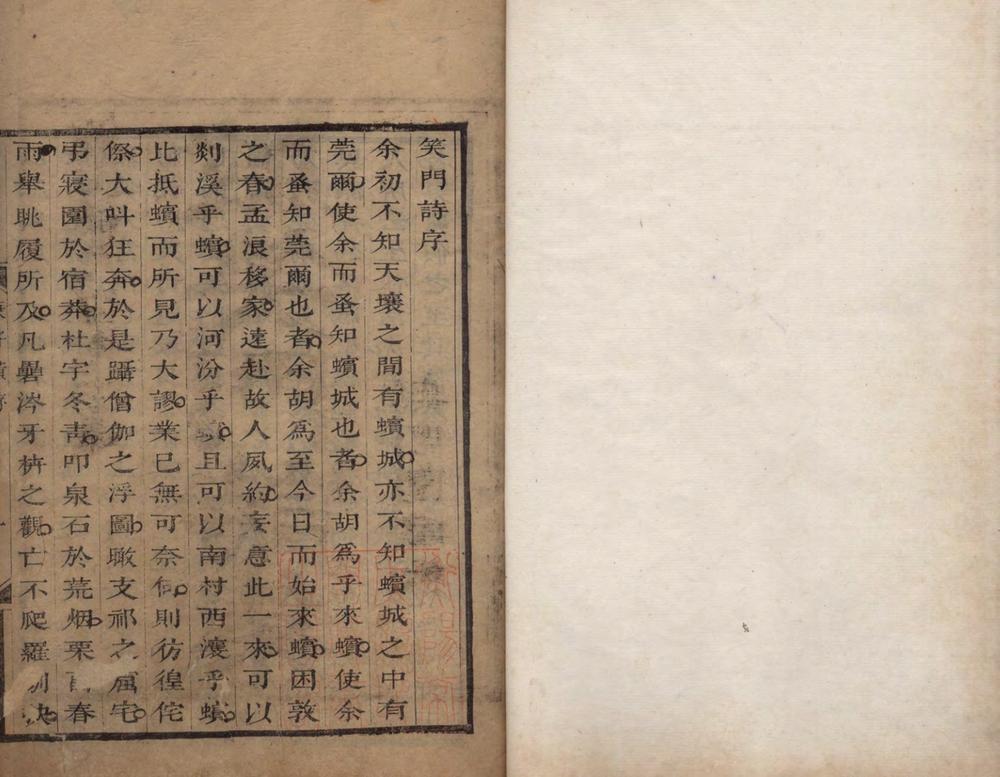 笑門詩序
余初不知天壤之間有蠙城亦不知蠙城之中有
莞爾使余而蚤知蠙城也者余胡爲乎來蠙使余
而蚤知莞爾也者余胡爲至今日而始來蠙困敦
之春孟浪移家遠赴故人夙約妄意此一來可以
剡溪乎蠙可以河汾乎蠙且可以南村西瀼乎蠙
比抵蠙而所見乃大謬業已無可奈何則彷徨侘
傺大叫狂奔於是躡僧伽之浮圖瞰支祁之窟宅
弔寢園於宿莽杜宇冬靑叩泉石於荒烟栗里春
雨舉眺履所及凡礨涔牙枿之觀亡不爬羅剔抉